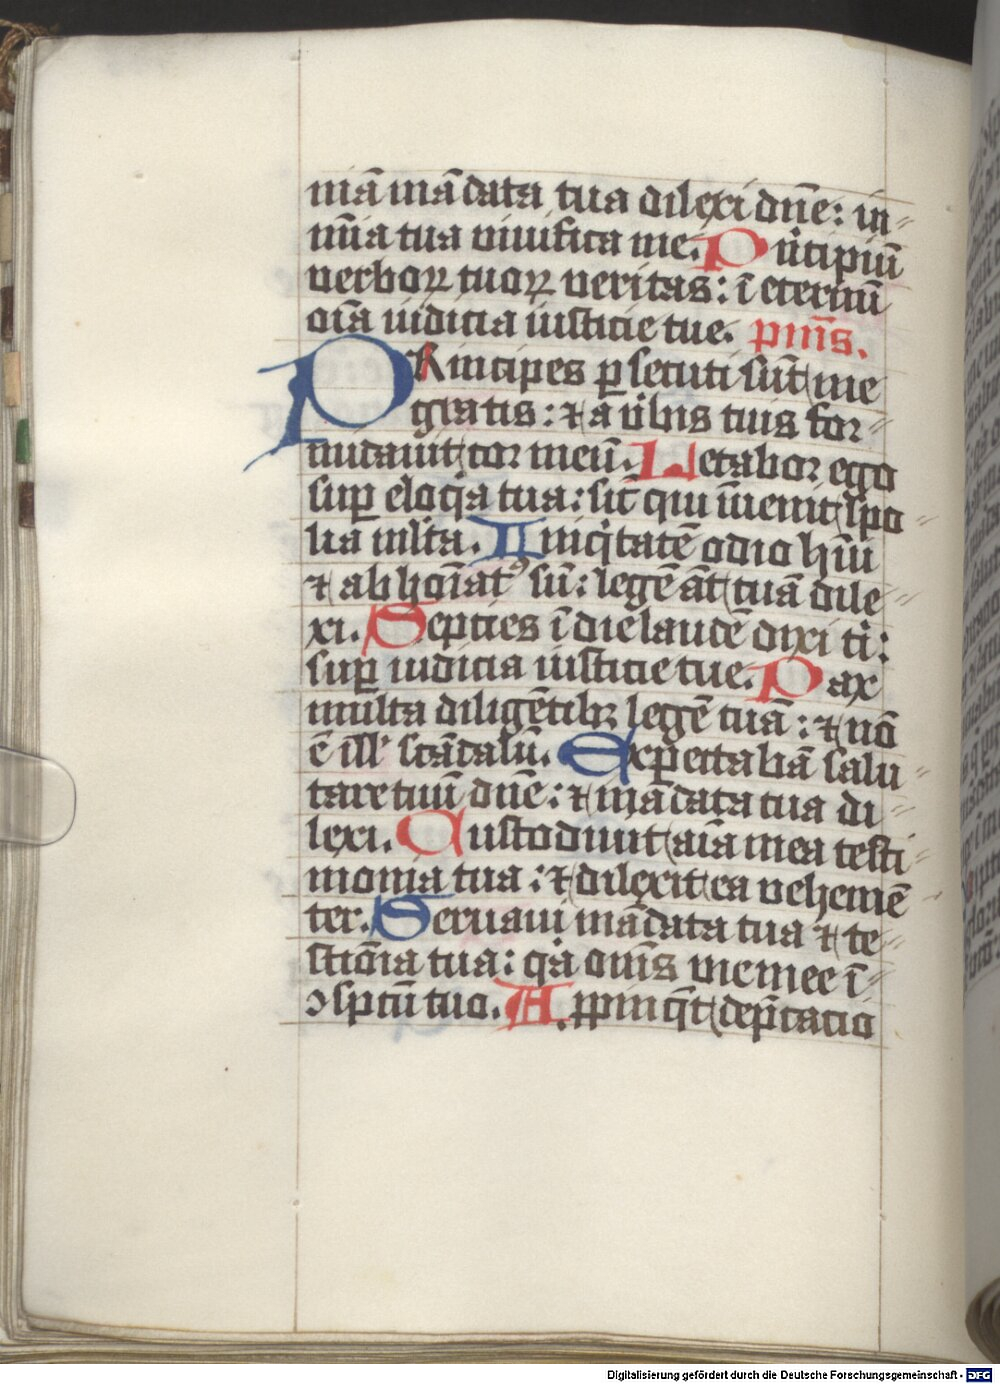 niā mādata tua dilexi dn̄e: in⸗
mīa tua viuifica me. Pͥncipiū
verboꝝ tuoꝝ veritas: ī eternū
oīa iudicia iusticie tue. pm̄s.
PRincipes ꝑsecuti sūt me
gratis: ⁊ a v̾bis tuis for⸗
midauit cor meū. Letabor ego
suꝑ eloqͥa tua: sic̄ qui īuenit spo⸗
lia ml̄ta. Iniqͥtatē odio hūi
⁊ abhoīatꝰ sū: legē āt tuā dile⸗
xi. Septies ī die laudē dixi ti:
suꝑ iudicia iusticie tue. Pax
multa diligētibꝫ legē tuā: ⁊ nō
ē ill̄ scādalū. Expectabā salu⸗
tare tuū dn̄e: ⁊ mādata tua di⸗
lexi. Custodiuit aīa mea testi⸗
monia tua: ⁊ dilexit ea vehemē⸗
ter. Seruaui mādata tua ⁊ te⸗
stiōia tua: qͥa om̄s vie mee ī⸗
ↄspcū tuo. Aꝓpinqͣt dep̄catio
Digitalisierung gefördert durch die Deutsche Forschungsgemeinschaft - DFG